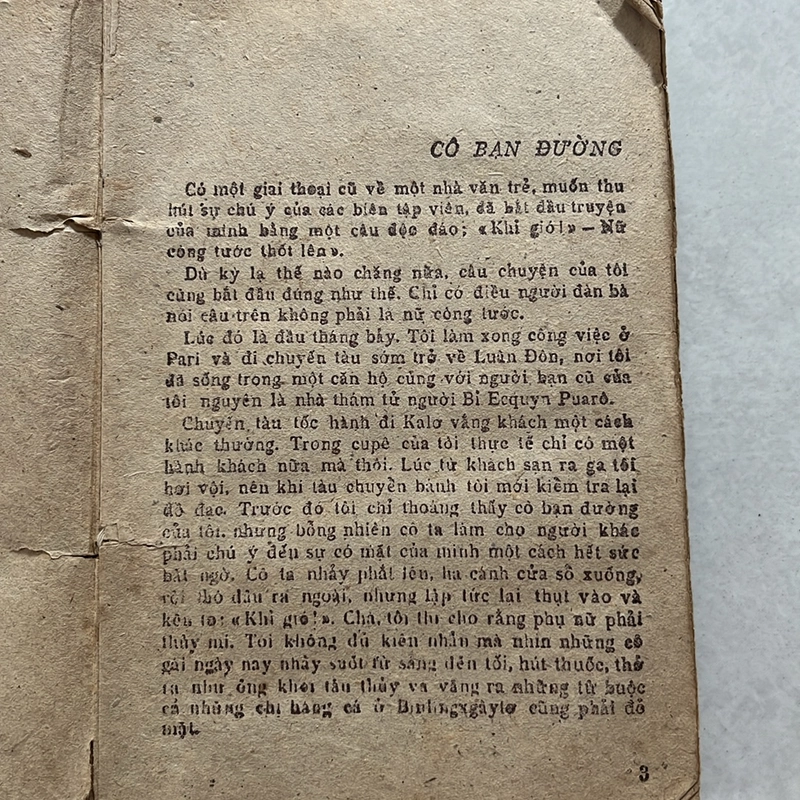 CÔ BẠN ĐƯỜNG
Có một giai thoại cũ về một nhà văn trẻ, muốn thu
hút sự chú ý của các biên tập viên, đã bắt đầu truyện
của mình bằng một câu độc đáo: «Khỉ gió!» — Nữ
công tước thốt lên».
Dù kỳ lạ thế nào chăng nữa, câu chuyện của tôi
cũng bắt đầu đúng như thế. Chỉ có điều người đàn bà
nói câu trên không phải là nữ công tước.
Lúc đó là đầu tháng bảy. Tôi làm xong công việc ở
Pari và đi chuyến tàu sớm trở về Luân Đôn, nơi tôi
đã sống trong một căn hộ cùng với người bạn cũ của
tôi nguyên là nhà thám tử người Bỉ Ecquyn Puarô.
Chuyến tàu tốc hành đi Kalơ vắng khách một cách
khác thường. Trong cupê của tôi thực tế chỉ có một
hành khách nữa mà thôi. Lúc từ khách sạn ra ga tôi
hơi vội, nên khi tàu chuyển bánh tôi mới kiểm tra lại
đồ đạc. Trước đó tôi chỉ thoáng thấy cô bạn đường
của tôi, nhưng bỗng nhiên cô ta làm cho người khác
phải chú ý đến sự có mặt của mình một cách hết sức
bất ngờ. Cô ta nhảy phắt lên, hạ cánh cửa sổ xuống,
rồi thò đầu ra ngoài, nhưng lập tức lại thụt vào và
kêu to: «Khỉ gió!». Chà, tôi thì cho rằng phụ nữ phải
thùy mị. Tôi không đủ kiên nhẫn mà nhìn những cô
gái ngày nay nhảy suốt từ sáng đến tối, hút thuốc, thở
ra như ống khói tàu thủy và văng ra những từ buộc
cả những chị hàng cá ở Binlingxgâytơ cũng phải đỏ
mặt.
3